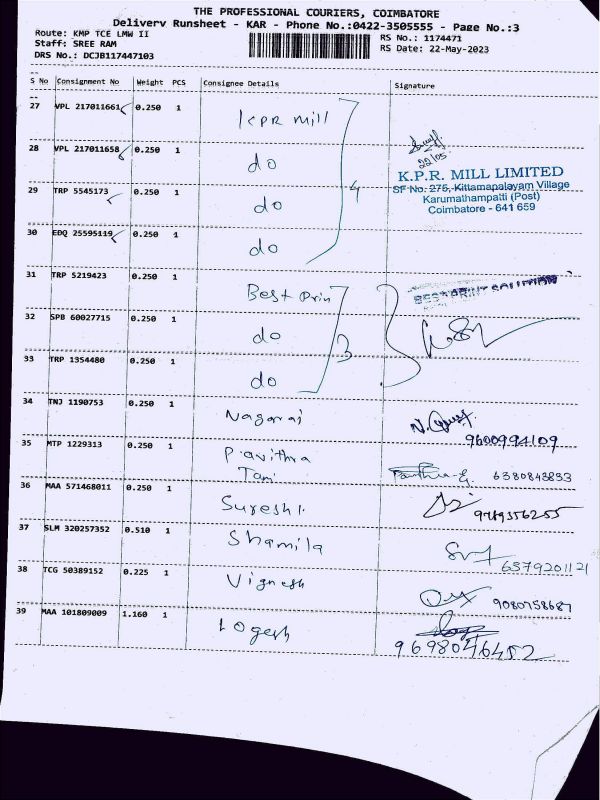 THE PROFESSIONAL COURIERS, COIMBATORE
Delivery Runsheet - KAR - Phone No.:0422-3505555 - Page No.:3
Route: KMP TCE LMW II
Staff: SREE RAM
DRS No.: DCJB117447103
RS No.: 1174471
RS Date: 22-May-2023
S No Consignment No Weight PCS Consignee Details Signature
27 VPL 217011661 0.250 1 KPR mill
28 VPL 217011658 0.250 1 do
22/05
K.P.R. MILL LIMITED
SF No: 275, Kittamapalayam Village
Karumathampatti (Post)
Coimbatore - 641 659
29 TRP 5545173 0.250 1 do
4
30 EDQ 25595119 0.250 1 do
31 TRP 5219423 0.250 1 Best Prin
BEST PRINT SOLUTION
32 SPB 60027715 0.250 1 do
3
33 TRP 1354480 0.250 1 do
34 TNJ 1190753 0.250 1 Nagaraj
9600994109
35 MTP 1229313 0.250 1 Pavithra
Tami 6380843833
36 MAA 571468011 0.250 1 Suresh
9789356255
37 SLM 320257352 0.510 1 Shamila
6379201121
38 TCG 50389152 0.225 1 Vignesh
9080758687
39 MAA 101809009 1.160 1 Logesh
9698046452